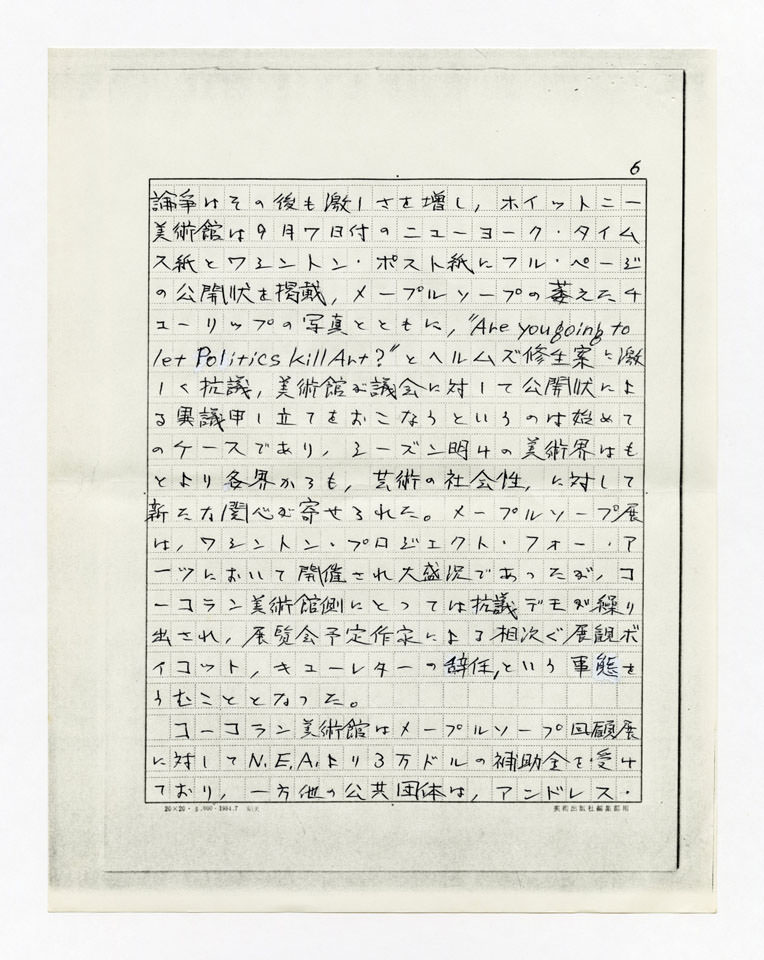 6
論争はその後も激しさを増し，ホイットニー
美術館は9月7日付のニューヨーク・タイム
ス紙とワシントン・ポスト紙にフル・ページ
の公開状を掲載，メープルソープの萎えたチ
ューリップの写真とともに，"Are you going to
let Politics kill Art?"とヘルムズ修生案に激
しく抗議，美術館が議会に対して公開状によ
る異議申し立てをおこなうというのは始めて
のケースであり，シーズン明けの美術界はも
とより各界からも，芸術の社会性，に対して
新たな関心が寄せられた。メープルソープ展
は，ワシントン・プロジェクト・フォー・ア
ーツにおいて開催され大盛況であったが，コ
ーコラン美術館側にとっては抗議デモが繰り
出され，展覧会予定作家による相次ぐ展観ボ
イコット，キューレターの辞任，という事態を
うむこととなった。
コーコラン美術館はメープルソープ回顧展
に対してN.E.A.より3万ドルの補助金を受け
ており，一方他の公共団体は，アンドレス・
20×20・ 1984.7 美術出版社編集部用